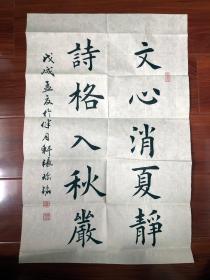 文心消夏靜
詩格入秋嚴
戊戌孟夏於伴月軒張瑞銘